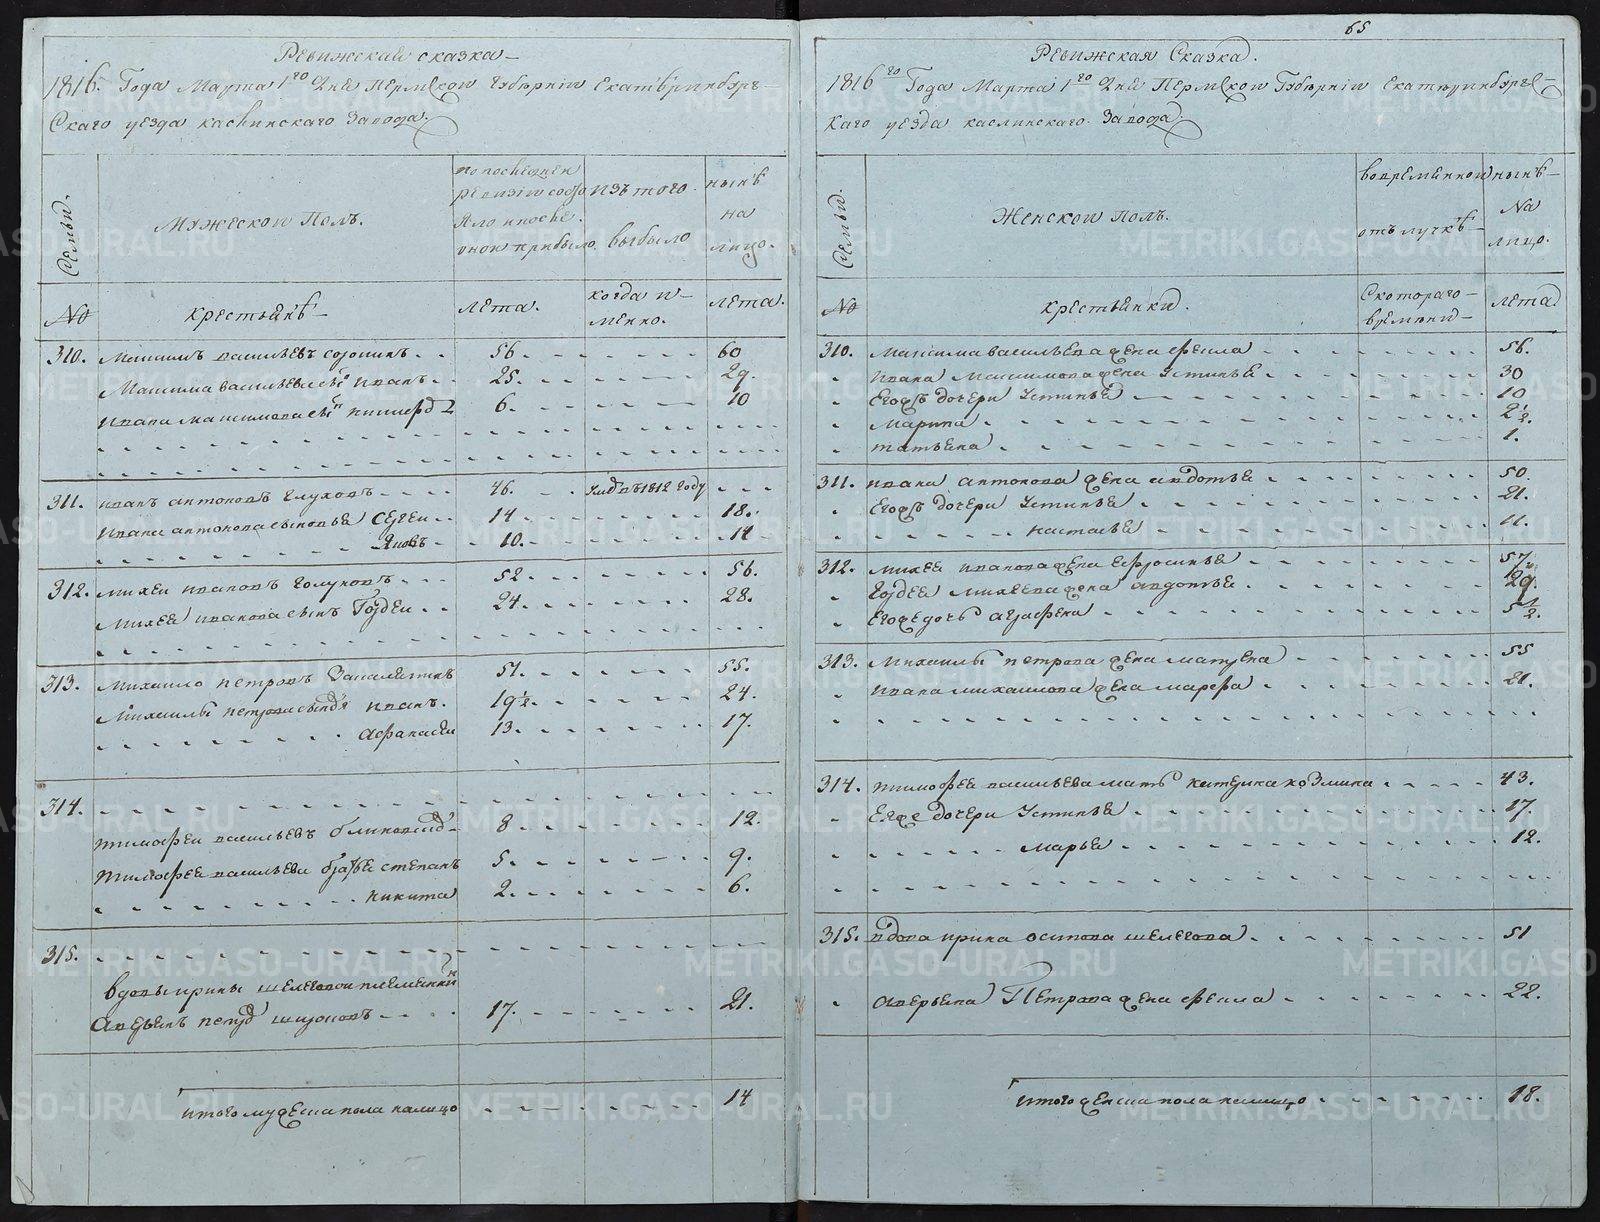 Ревижская сказка
1816. Года Марта 1го дня Пермской губернии Екатеринбург-
скаго уезда каслинскаго завода.
Семьи.
Мужескои полъ.
по последней
ревизии состо
яло и после.
оной прибыло
изъ того.
выбыло
нынѣ
на
лицо.
№
крестьянѣ
лета.
когда и-
менно.
лета.
310. Максимъ васильевъ сорокинъ 56. 60
Максима васильева сынъ иванъ 25. 29.
ивана максимова сынъ 6. 10
311. иванъ антоновъ глуховъ 46. 1812 году
ивана антонова сыновья Сергеи 14 18.
Яковъ 10. 14
312. михеи ивановъ голуновъ 52. 56.
михея иванова сынъ Гордеи 24. 28.
313. Михаило петровъ 51. 55.
Михаилы петрова сыновья иванъ. 19½ 24.
афанасеи 13. 17.
314.
тимофеи васильевъ 8 12.
тимофея васильева братья степанъ 5. 9.
никита 2. 6.
315.
вдовы ирины шелеговой племянник
Аверьянъ петров 17. 21.
итого мужеска пола налицо 14
65
Ревижская Сказка.
1816го Года Марта 1го дня Пермской Губернии Екатеринбургс-
каго уезда каслинскаго завода.
Семьи.
Женскои полъ.
во временнои
отълучкѣ
нынѣ
На
лицо.
№
крестьянки.
Скотораго
времени
лета
310. Максима васильева жена фекла 56.
ивана Максимова жена Устинья 30
Егожъ дочери Устинья 10
марина 2½.
татьяна 1.
311. ивана антонова жена авдотья 50.
Егожъ дочери Устинья 21.
настасья 11.
312. михея иванова жена Ефросинья 57.
Гордея михеева жена авдотья 29.
Егоже дочь аграфена 5½.
313. Михаилы петрова жена матрена 55
ивана михаилова жена марфа 21.
314. тимофея васильева мать катерина козмина 43.
Егоже дочери Устинья 17.
марья 12.
315. вдова ирина осипова шелегова 51
аверьяна Петрова жена фекла 22.
Итого женска пола налицо 18.
METRIKI.GASO-URAL.RU